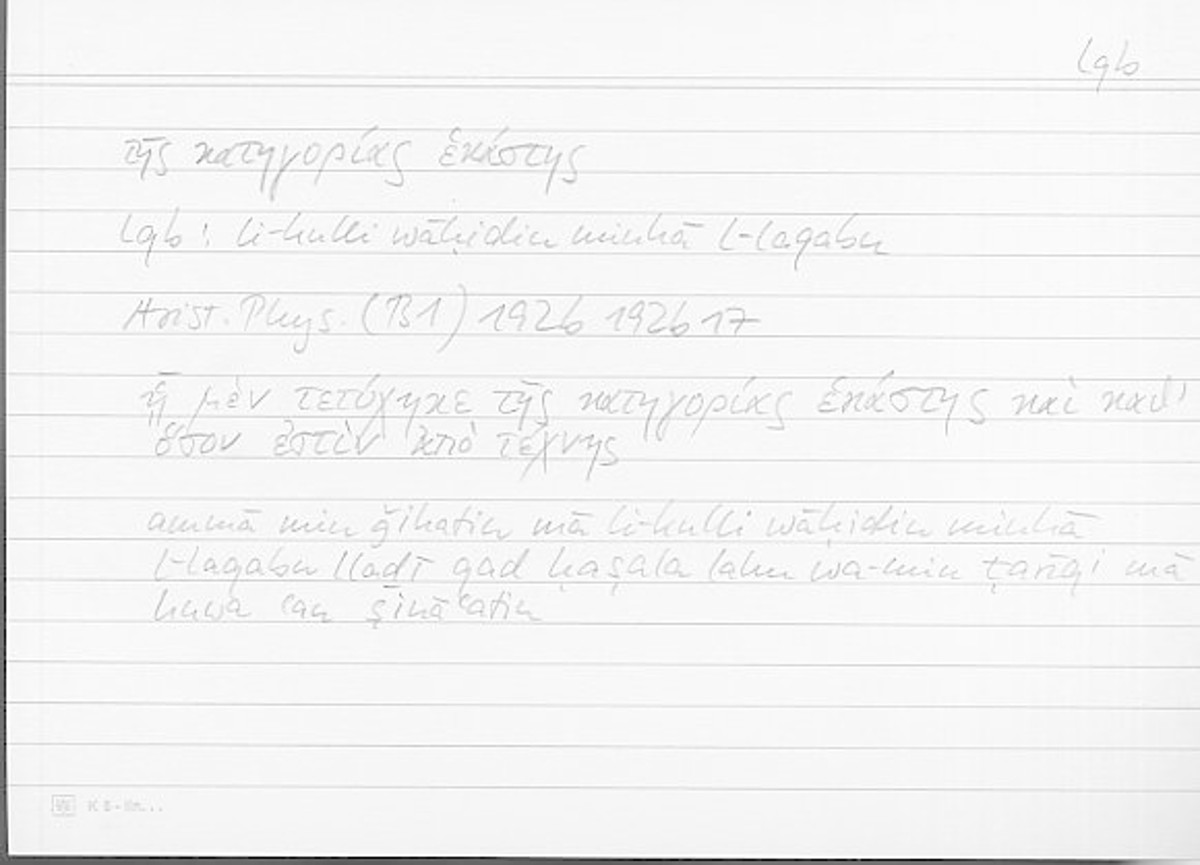 lqb
τῆς κατηγορίας ἑκάστης
lqb: li-kulli wāḥidin minhā l-laqabu
Arist. Phys. (B1) 192b 192b17
ᾗ μὲν τετύχηκε τῆς κατηγορίας ἑκάστης καὶ καθ'
ὅσον ἐστὶν ἀπὸ τέχνης
ammā min ǧihatin mā li-kulli wāḥidin minhā
l-laqabu lladī qad ḥaṣala lahu wa-min ṭarīqi mā
huwa ʿan ṣināʿatin